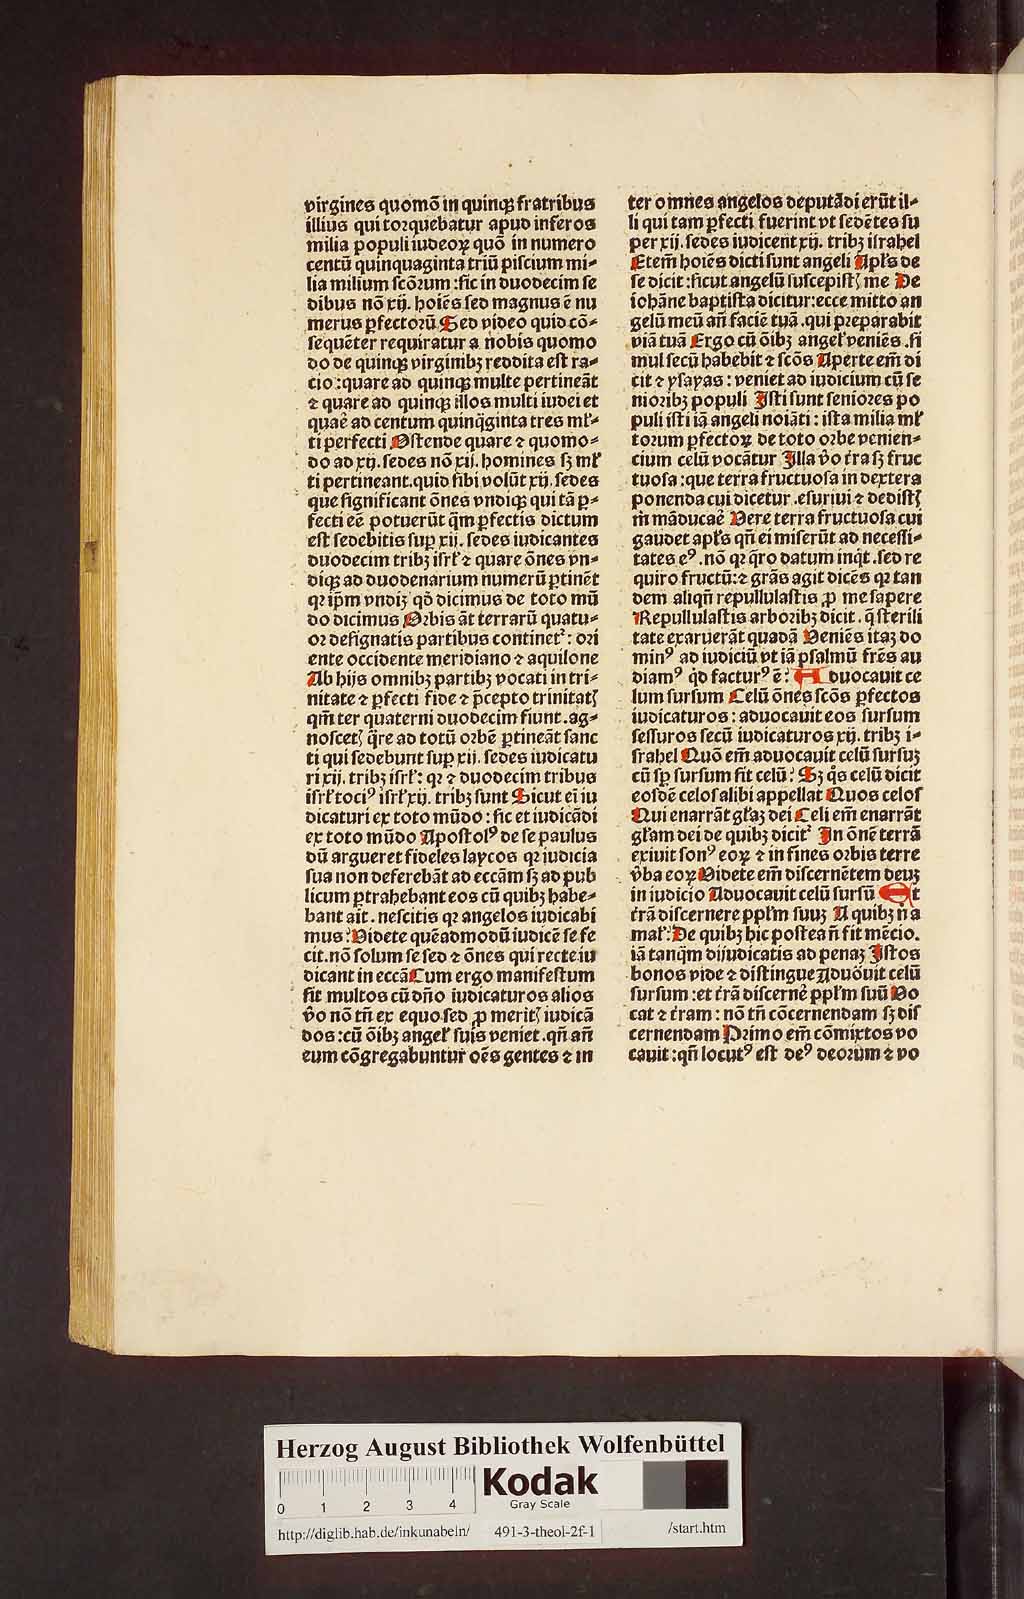 virgines quomō in quinqꝫ fratribus
illius qui torquebatur apud inferos
milia populi iudeoꝝ quō in numero
centū quinquaginta triū piscium mi-
lia milium scōrum : sic in duodecim se
dibus nō xij. hoiēs sed magnus ē nu
merus ꝑfectorū Sed video quid cō-
sequēter requiratur a nobis quomo
do de quinqꝫ virginibꝫ reddita est ra-
cio : quare ad quinqꝫ multe pertineāt
⁊ quare ad quinqꝫ illos multi iudei et
quaē ad centum quinq̄ginta tres mł-
ti perfecti Ostende quare ⁊ quomo-
do ad xij. sedes nō xij. homines sꝫ mł
ti pertineant. quid sibi volūt xij. sedes
que significant ōnes vndiqꝫ qui tā ꝑ-
fecti eē potuerūt q̄m ꝑfectis dictum
est sedebitis suꝑ xij. sedes iudicantes
duodecim tribꝫ isrł ⁊ quare ōnes vn-
diqꝫ ad duodenarium numerū ꝑtinēt
qꝛ ip̄m vndiꝫ qd̄ dicimus de toto mū
do dicimus Orbis āt terrarū quatu-
or designatis partibus continetᷣ : ori
ente occidente meridiano ⁊ aquilone
Ab hijs omnibꝫ partibꝫ vocati in tri-
nitate ⁊ ꝑfecti fide ⁊ p̄cepto trinitatꝭ
qm̄ ter quaterni duodecim fiunt. ag-
noscetꝭ q̄re ad totū orbē ꝑtineāt sanc
ti qui sedebunt suꝑ xij. sedes iudicatu
ri xij. tribꝫ isrł : qꝛ ⁊ duodecim tribus
isrł tociꝰ isrł xij. tribꝫ sunt Sicut eī iu
dicaturi ex toto mūdo : sic et iudicādi
ex toto mūdo Apostolꝰ de se paulus
dū argueret fideles laycos qꝛ iudicia
sua non deferebāt ad eccām sꝫ ad pub
licum ꝑtrahebant eos cū quibꝫ habe-
bant ait. nescitis qꝛ angelos iudicabi
mus : Videte quēadmodū iudicē se fe
cit. nō solum se sed ⁊ ōnes qui recte iu
dicant in eccā Cum ergo manifestum
sit multos cū dn̄o iudicaturos alios
v̄o nō tn̄ ex equo. sed ꝓ meritꝭ iudicā
dos : cū ōibꝫ angeł suis veniet. qn̄ an̄
eum cōgregabuntur oēs gentes ⁊ in
ter omnes angelos deputādi erūt il-
li qui tam ꝑfecti fuerint vt sedētes su
per xij. sedes iudicent xij. tribꝫ israhel
Etem̄ hoiēs dicti sunt angeli Apłs de
se dicit : sicut angelū suscepistꝭ me De
iohāne baptista dicitur : ecce mitto an
gelū meū an̄ faciē tuā. qui preparabit
viā tuā Ergo cū ōibꝫ angeł veniēs. si
mul secū habebit ⁊ scōs Aperte em̄ di
cit ⁊ ysayas : veniet ad iudicium cū se
nioribꝫ populi Isti sunt seniores po
puli isti iā angeli noiāti : ista milia mł
torum ꝑfectoꝝ de toto orbe venien-
cium celū vocātur Illa v̄o t́ra sꝫ fruc
tuosa : que terra fructuosa in dextera
ponenda cui dicetur. esuriui ⁊ dedistꝭ
m̄ māducaē Vere terra fructuosa cui
gaudet apłs qn̄ ei miserūt ad necessi-
tates eꝰ. nō qꝛ q̄ro datum inqͥt. sed re
quiro fructū : ⁊ grās agit dicēs qꝛ tan
dem aliqn̄ repullulastis ꝓ me sapere
Repullulastis arboribꝫ dicit. q̄ sterili
tate exaruerāt quadā Veniēs itaꝫ do
minꝰ ad iudiciū vt iā psalmū fr̄es au
diamꝰ qd̄ facturꝰ ē : Aduocauit ce
lum sursum Celū ōnes scōs ꝑfectos
iudicaturos : aduocauit eos sursum
sessuros secū iudicaturos xij. tribꝫ i-
srahel Quō em̄ aduocauit celū sursuꝫ
cū sꝑ sursum sit celū : Sꝫ qͦs celū dicit
eosdē celos alibi appellat Quos celos
Qui enarrāt głaꝫ dei Celi em̄ enarrāt
głam dei de quibꝫ dicitᷣ In ōnē terrā
exiuit sonꝰ eoꝝ ⁊ in fines orbis terre
v̄ba eoꝝ Videte em̄ discernētem deuꝫ
in iudicio Aduocauit celū sursū Et
t́rā discernere ppłm suuꝫ A quibꝫ n̄ a
mał : De quibꝫ hic postea n̄ fit mēcio.
iā tanqͥm dijudicatis ad penaꝫ Istos
bonos vide ⁊ distingue Aduōuit celū
sursum : et t́rā discernē ppłm suū Vo
cat ⁊ t́ram : nō tn̄ cōcernendam sꝫ dis
cernendam Primo em̄ cōmixtos vo
cauit : qn̄ locutꝰ est deꝰ deorum ⁊ vo
Herzog August Bibliothek Wolfenbüttel
0 1 2 3 4
Kodak
Gray Scale
http://diglib.hab.de/inkunabeln/ 491-3-theol-2f-1 /start.htm